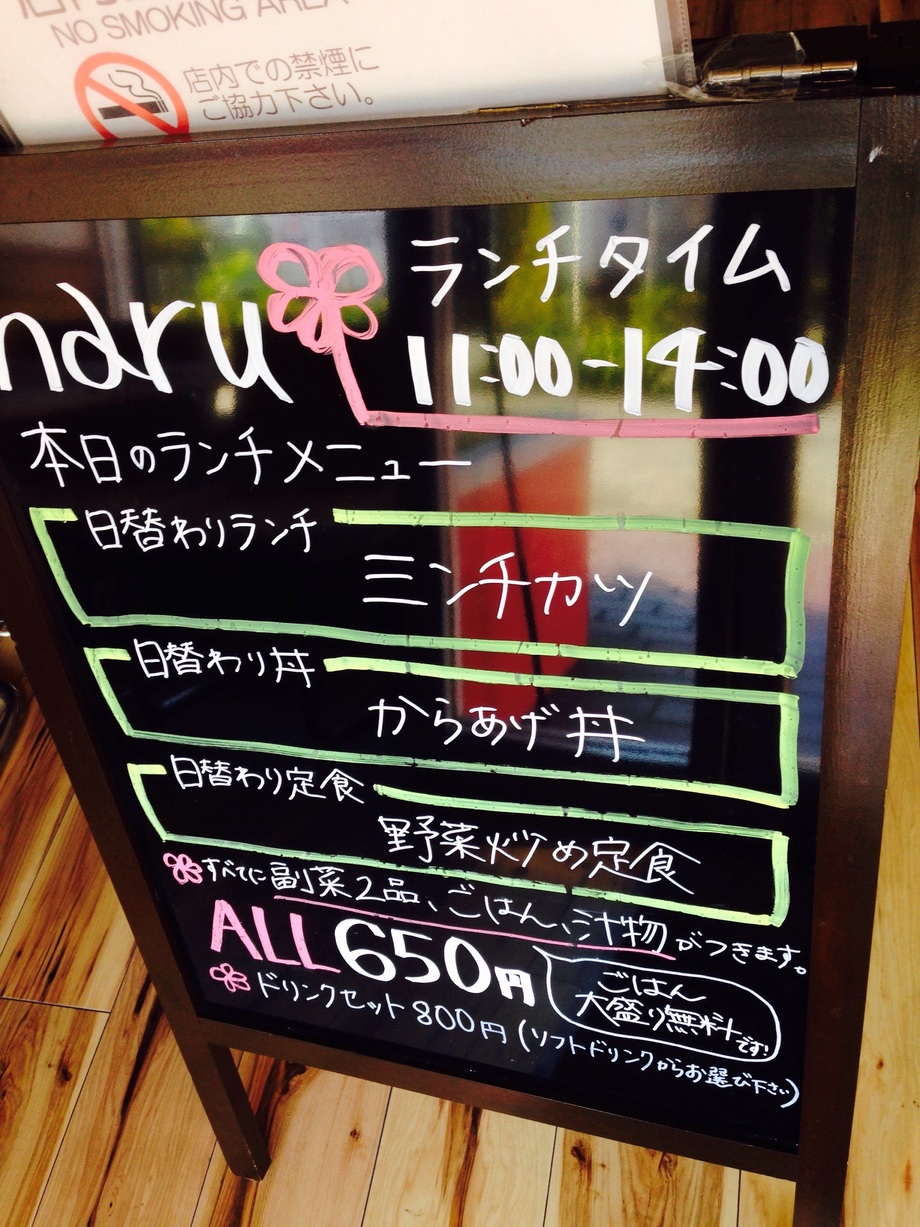 NO SMOKING AREA
店内での禁煙に
ご協力下さい。
naru
ランチタイム
11:00-14:00
本日のランチメニュー
日替わりランチ
ミンチカツ
日替わり丼
からあげ丼
日替わり定食
野菜炒め定食
すべてに副菜2品、ごはん、汁物がつきます。
ALL650円
ごはん
大盛り無料です!
ドリンクセット 800円(ソフトドリンクからお選び下さい)